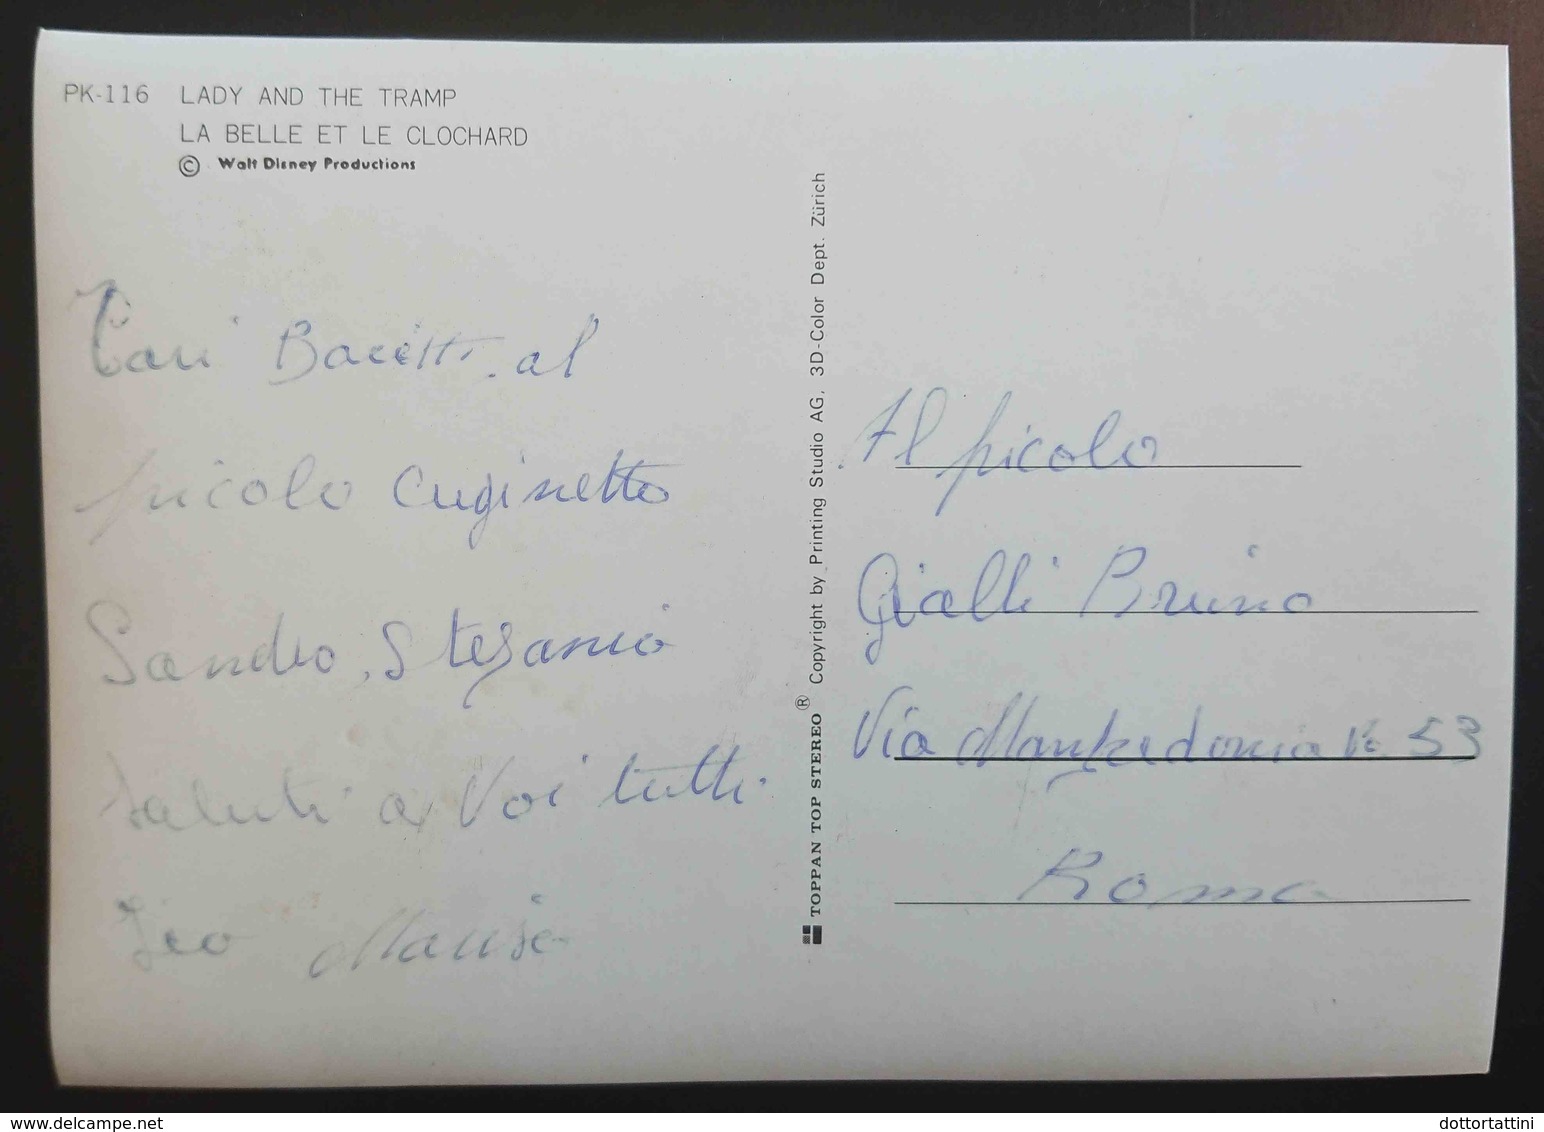 PK-116 LADY AND THE TRAMP
LA BELLE ET LE CLOCHARD
© Walt Disney Productions
Cari Bacetti al
picolo cuginetto
Sandro, Stefania
saluti a Voi tutti
Marisa
TOPPAN TOP STEREO® Copyright by Printing Studio AG, 3D-Color Dept. Zürich
Al picolo
Gialli Bruno
Via 53
Roma
dottortattini